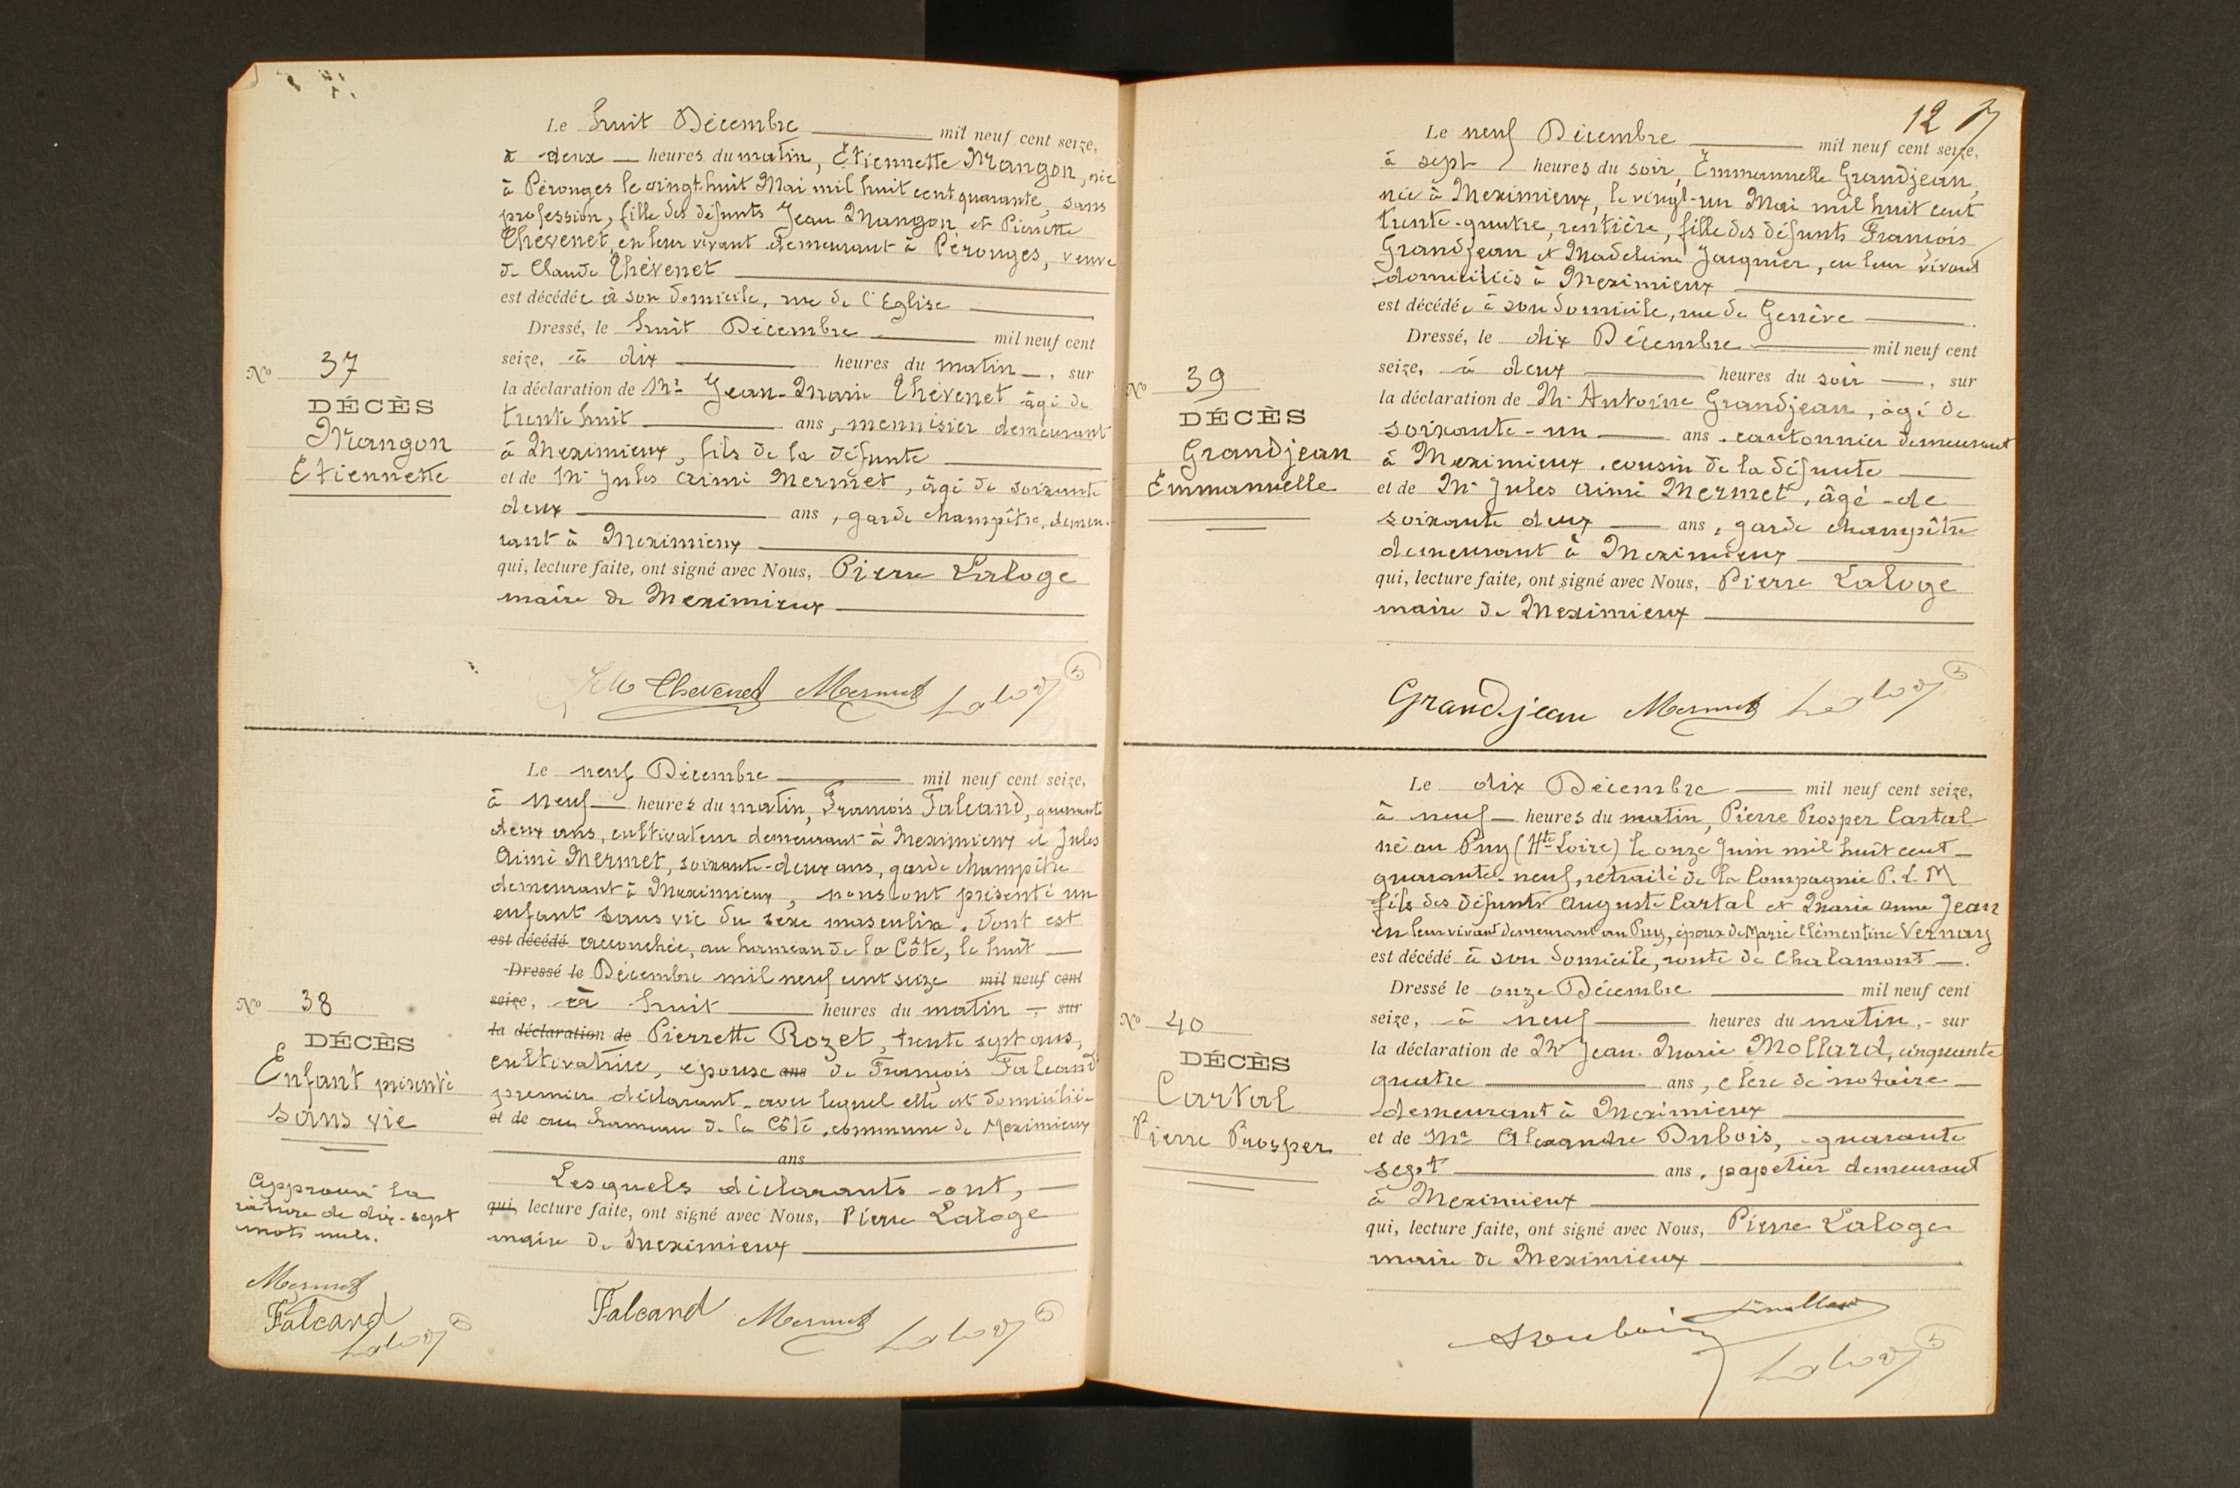 Le huit Décembre mil neuf cent seize,
à deux heures du matin, Etiennette Mangon, née
à Pérouges le vingt huit Mai mil huit cent quarante, sans
profession, fille des défunts Jean Mangon et Pierrette
Thévenet, en leur vivant demeurant à Pérouges, veuve
de Claude Thévenet
est décédée à son domicile, rue de l'Eglise
Dressé, le huit Décembre mil neuf cent
seize, à dix heures du matin, sur
la déclaration de Mr Jean-Marie Thévenet âgé de
trente huit ans, menuisier demeurant
à Meximieux, fils de la défunte
et de Mr Jules Aimé Mermet, âgé de soixante
deux ans, garde champêtre, demeu-
rant à Meximieux
qui, lecture faite, ont signé avec Nous, Pierre Laloge
maire de Meximieux
No 37
DÉCÈS
Mangon
Etiennette
Thevenet Mermet Laloge
Le neuf Décembre mil neuf cent seize,
à neuf heures du matin, François Falcand, quarante
deux ans, cultivateur demeurant à Meximieux et Jules
Aimé Mermet, soixante-deux ans, garde champêtre
demeurant à Meximieux, nous ont présenté un
enfant sans vie du sexe masculin, dont est
est décédé accouchée, au hameau de la Côte, le huit
Dressé le Décembre mil neuf cent seize mil neuf cent
seize, à huit heures du matin, sur
la déclaration de Pierrette Rozet, trente sept ans,
cultivatrice, épouse ans de François Falcand
premier déclarant avec lequel elle est domiciliée
et de au hameau de la Côte, commune de Meximieux
ans
Lesquels déclarants ont,
qui, lecture faite, ont signé avec Nous, Pierre Laloge
maire de Meximieux
No 38
DÉCÈS
Enfant présenté
sans vie
Approuvé la
rature de dix-sept
mots nuls.
Mermet
Falcand
Laloge
Falcand Mermet Laloge
12
Le neuf Décembre mil neuf cent seize,
à sept heures du soir, Emmanuelle Grandjean,
née à Meximieux, le vingt-un Mai mil huit cent
trente-quatre, rentière, fille des défunts François
Grandjean et Madeleine Jacquier, en leur vivant
domiciliés à Meximieux
est décédée à son domicile, rue de Genève
Dressé, le dix Décembre mil neuf cent
seize, à deux heures du soir, sur
la déclaration de Mr Antoine Grandjean, âgé de
soixante-un ans, cantonnier demeurant
à Meximieux, cousin de la défunte
et de Mr Jules Aimé Mermet, âgé de
soixante deux ans, garde champêtre
demeurant à Meximieux
qui, lecture faite, ont signé avec Nous, Pierre Laloge
maire de Meximieux
No 39
DÉCÈS
Grandjean
Emmanuelle
Grandjean Mermet Laloge
Le dix Décembre mil neuf cent seize,
à neuf heures du matin, Pierre Prosper Cartal
né au Puy (Hte Loire) le onze Juin mil huit cent
quarante-neuf, retraité de la Compagnie P. L. M
fils des défunts Auguste Cartal et Marie Anne Jean
en leur vivant demeurant au Puy, époux de Marie Clémentine Vernay
est décédé à son domicile, route de Chalamont
Dressé le onze Décembre mil neuf cent
seize, à neuf heures du matin, sur
la déclaration de Mr Jean-Marie Mollard, cinquante
quatre ans, clerc de notaire
demeurant à Meximieux
et de Mr Alexandre Dubois, quarante
sept ans, papetier demeurant
à Meximieux
qui, lecture faite, ont signé avec Nous, Pierre Laloge
maire de Meximieux
No 40
DÉCÈS
Cartal
Pierre Prosper
Laloge